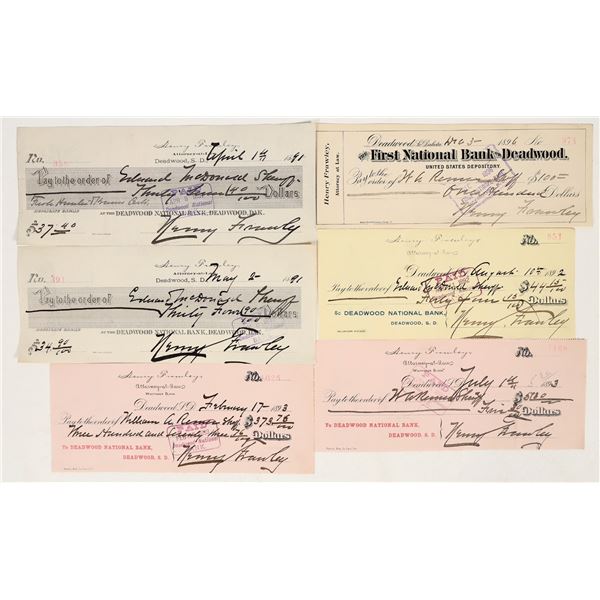 Henry Frawley,
Attorney-at-Law
Deadwood, S. D. April 1st 1891
No.
Pay to the order of Edward McDonald Sheriff
Thirty Seven 40/100 Dollars.
AT THE DEADWOOD NATIONAL BANK, DEADWOOD, DAK.
$37 40 Henry Frawley
Henry Frawley,
Deadwood, S. D. May 2 1891
No. 391
Pay to the order of Edward McDonald Sheriff
Thirty Four 90/100 Dollars.
AT THE DEADWOOD NATIONAL BANK, DEADWOOD, DAK.
$34 90/100 Henry Frawley
Henry Frawley,
Attorney-at-Law
No.
Deadwood, S D. February 17 1893
Pay to the order of William A. Remer Shff $373 76/100
Three Hundred and Seventy three Dollars
PAID
To DEADWOOD NATIONAL BANK,
DEADWOOD, S. D.
Henry Frawley
Henry Frawley,
Attorney at Law.
Deadwood, Dakota, 1896 No. 973
The First National Bank of Deadwood.
UNITED STATES DEPOSITORY.
Pay to the order of W A Remer Shff $100
One Hundred Dollars
Henry Frawley
Henry Frawley,
Attorney-at-Law
No. 851
Deadwood, August 10th 1892
Pay to the order of Edward McDonald Sheriff $44
Forty four Dollars
PAID
To DEADWOOD NATIONAL BANK,
DEADWOOD, S. D.
Henry Frawley
Henry Frawley,
Attorney-at-Law
No.
Deadwood, S D. July 1st 1893
Pay to the order of W A Remer Shff
Dollars
To DEADWOOD NATIONAL BANK,
DEADWOOD, S. D.
Henry Frawley